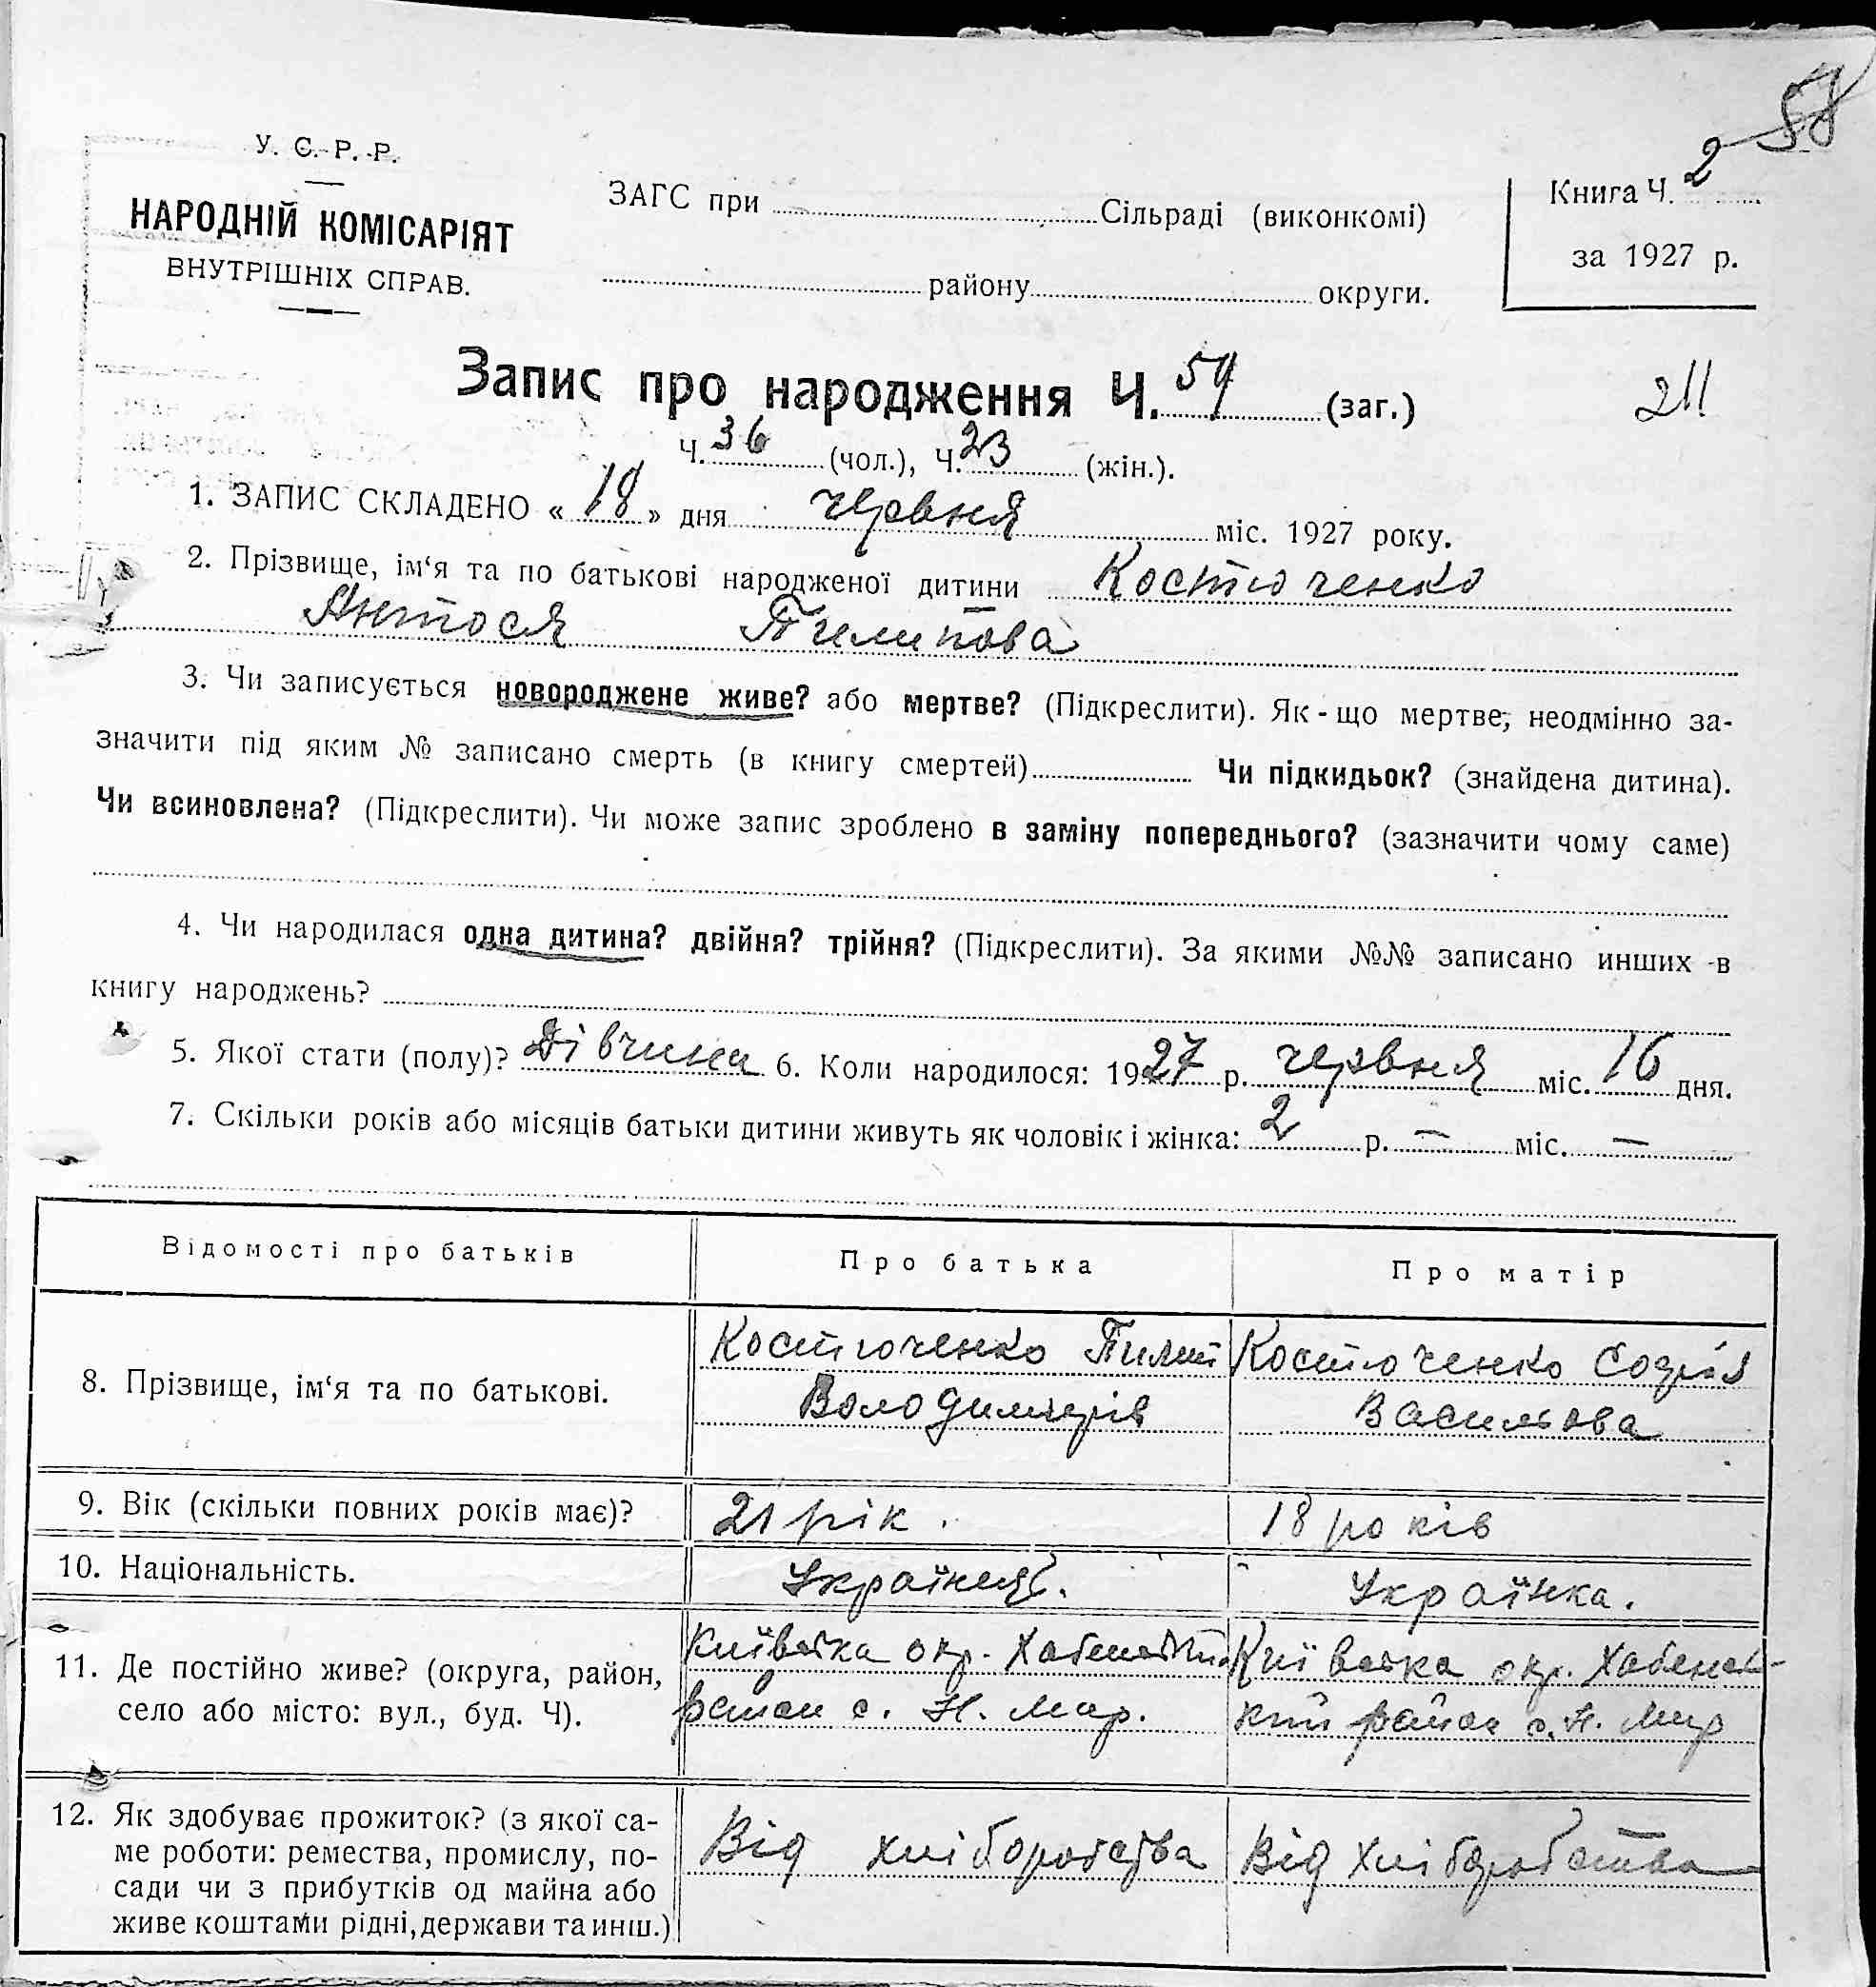 58
У. С. Р. Р.
НАРОДНІЙ КОМІСАРІЯТ
ВНУТРІШНІХ СПРАВ.
ЗАГС при Сільраді (виконкомі)
району округи.
Книга Ч. 2
за 1927 р.
Запис про народження Ч. 59 (заг.)
211
Ч. 36 (чол.), Ч. 23 (жін.).
1. ЗАПИС СКЛАДЕНО « 18 » дня червня міс. 1927 року.
2. Прізвище, ім‘я та по батькові народженої дитини Костюченко
Антося Пилипова
3. Чи записується новороджене живе? або мертве? (Підкреслити). Як-що мертве, неодмінно за-
значити під яким № записано смерть (в книгу смертей) Чи підкидьок? (знайдена дитина).
Чи всиновлена? (Підкреслити). Чи може запис зроблено в заміну попереднього? (зазначити чому саме)
4. Чи народилася одна дитина? двійня? трійня? (Підкреслити). За якими №№ записано инших в
книгу народжень?
5. Якої стати (полу)? Дівчина 6. Коли народилося: 1927 р. червня міс. 16 дня.
7. Скільки років або місяців батьки дитини живуть як чоловік і жінка: 2 р. — міс. —
Відомості про батьків Про батька Про матір
8. Прізвище, ім‘я та по батькові.
Костюченко Пилип
Володимирів
Костюченко Софія
Васильова
9. Вік (скільки повних років має)? 21 рік. 18 років
10. Національність. Українец. Українка.
11. Де постійно живе? (округа, район,
село або місто: вул., буд. Ч).
Київська окр. Хабенський
район с. Н. Мар.
Київська окр. Хабенсь-
кий район с. Н. Мар
12. Як здобуває прожиток? (з якої са-
ме роботи: ремества, промислу, по-
сади чи з прибутків од майна або
живе коштами рідні, держави та инш.)
Від хліборобства
Від хліборобства